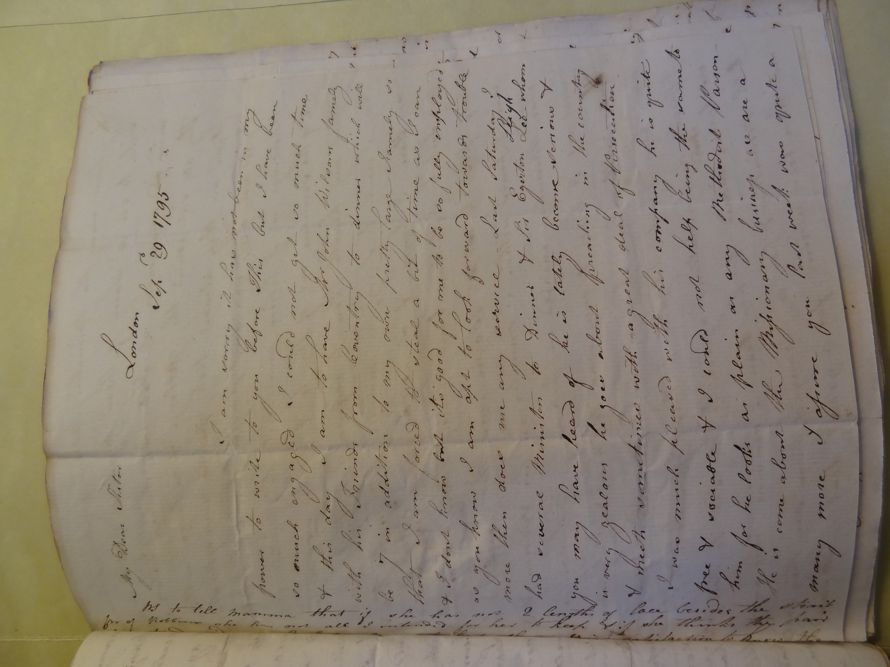 London
Sepr 29 1795
My Dear Sister
I am sorry it have not been in my
power to write to you before This but I have been
so much engaged I could not get so much time
& this day I am to have Mr John Wilson family
with his Friends from Coventry to dinner which will
be in addition to my own pretty large Family so
that I am forced to steal a bit of time as I can
& I dont know but its good for me to be so fully employed
as you know I am apt to look forward towards trouble
more then does me any service Last Saturday I
had several Ministers to Dinner & Sir Egerton Leigh whom
you may have heard of he is lately become serious &
is very zealous he goes about Preaching in the country
& meets sometimes with a great deal of Persecution
I was much pleased with his company he is quite
free & sociable & I could not help being the same to
him for he looks as plain as any Methodist Parson
He is come about the Missionary business we are a
many more I assure you last week was quite a
to tell mamma that if she has not 2 lengths of lace besides the
she thinks the pair